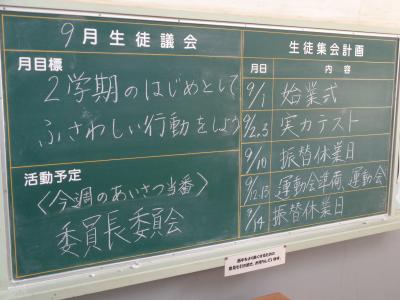 9月生徒議会
月目標
2学期のはじめとして
ふさわしい行動をしよう
活動予定
〈今週のあいさつ当番〉
委員長委員会
生徒集会計画
月日 内容
9/1 始業式
9/2.3 実力テスト
9/10 振替休業日
9/12.13 運動会準備、運動会
9/14 振替休業日